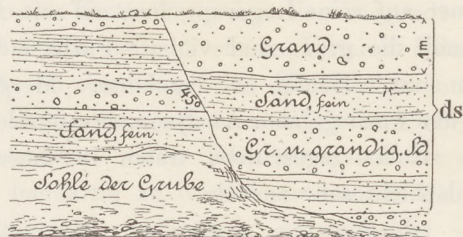 Grand
1 m.
45°
Sand, fein
ds
Sand, fein
Gr. u. grandig. Sd.
Sohle der Grube